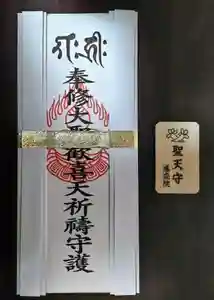 奉修大聖歓喜天祈禱守護
聖天守